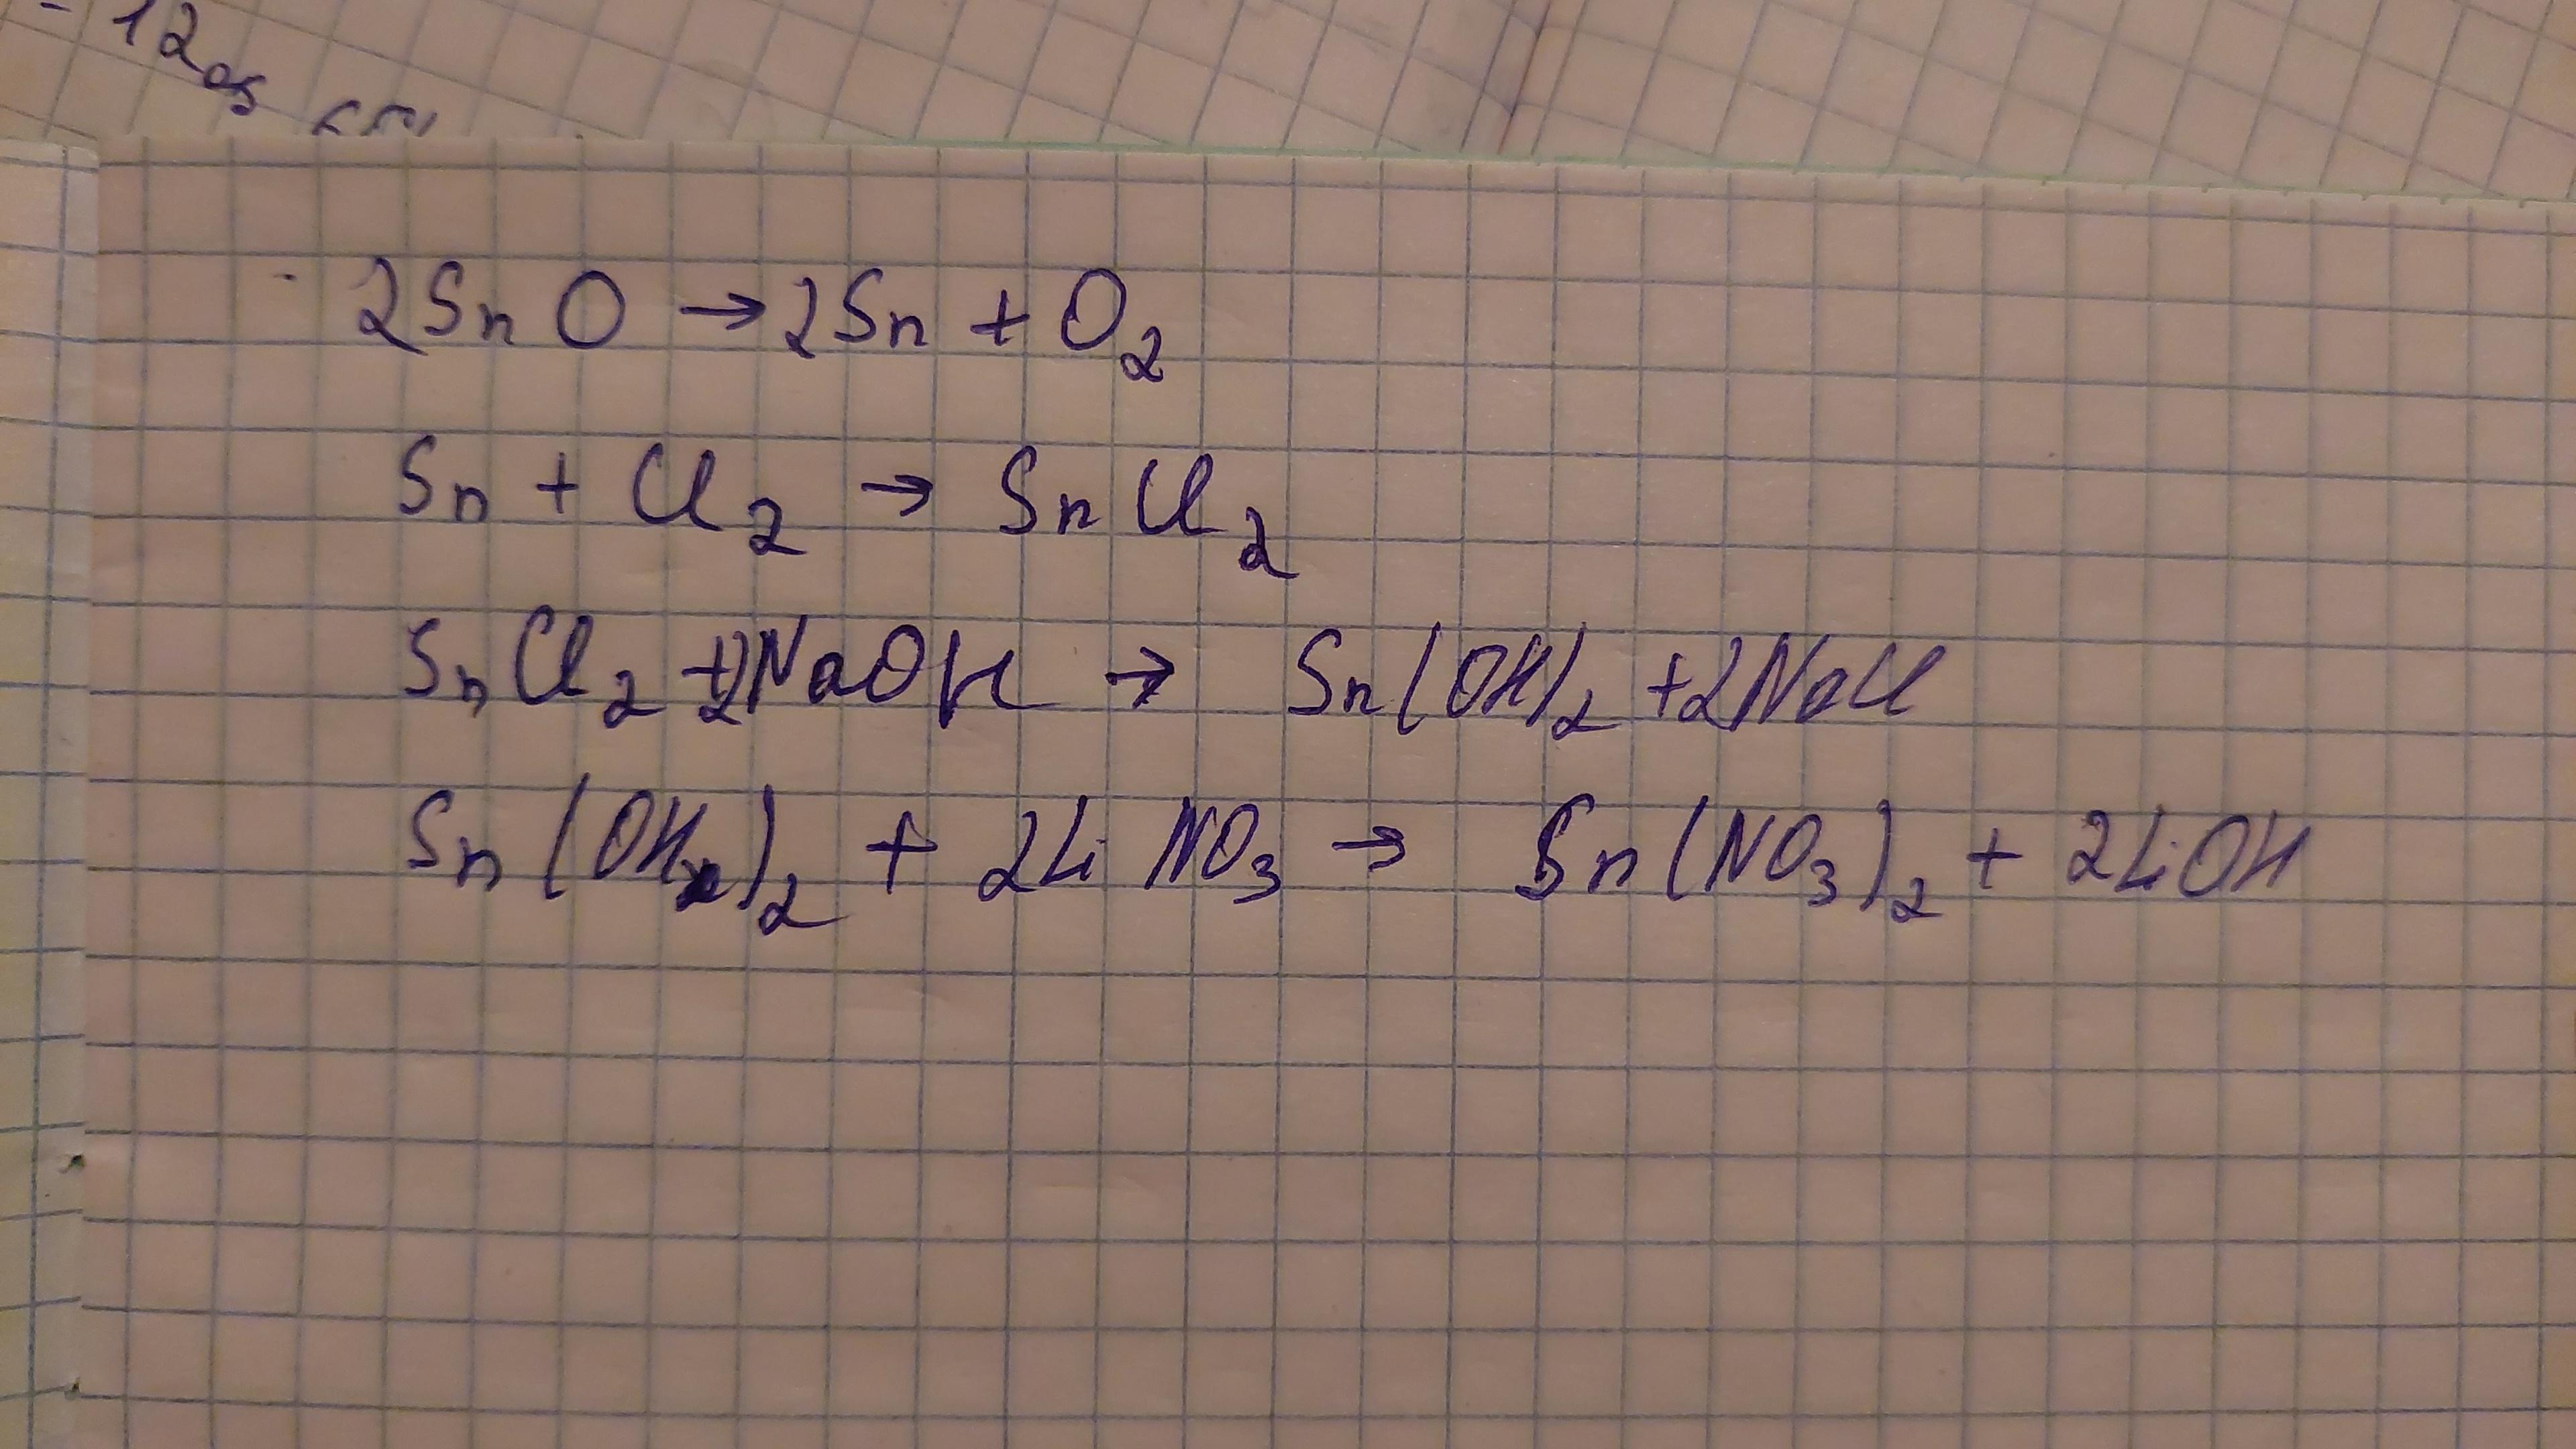 - 12
2SnO → 2Sn + O₂
Sn + Cl₂ → SnCl₂
SnCl₂ + 2NaOH → Sn(OH)₂ + 2NaCl
Sn(OH)₂ + 2LiNO₃ → Sn(NO₃)₂ + 2LiOH